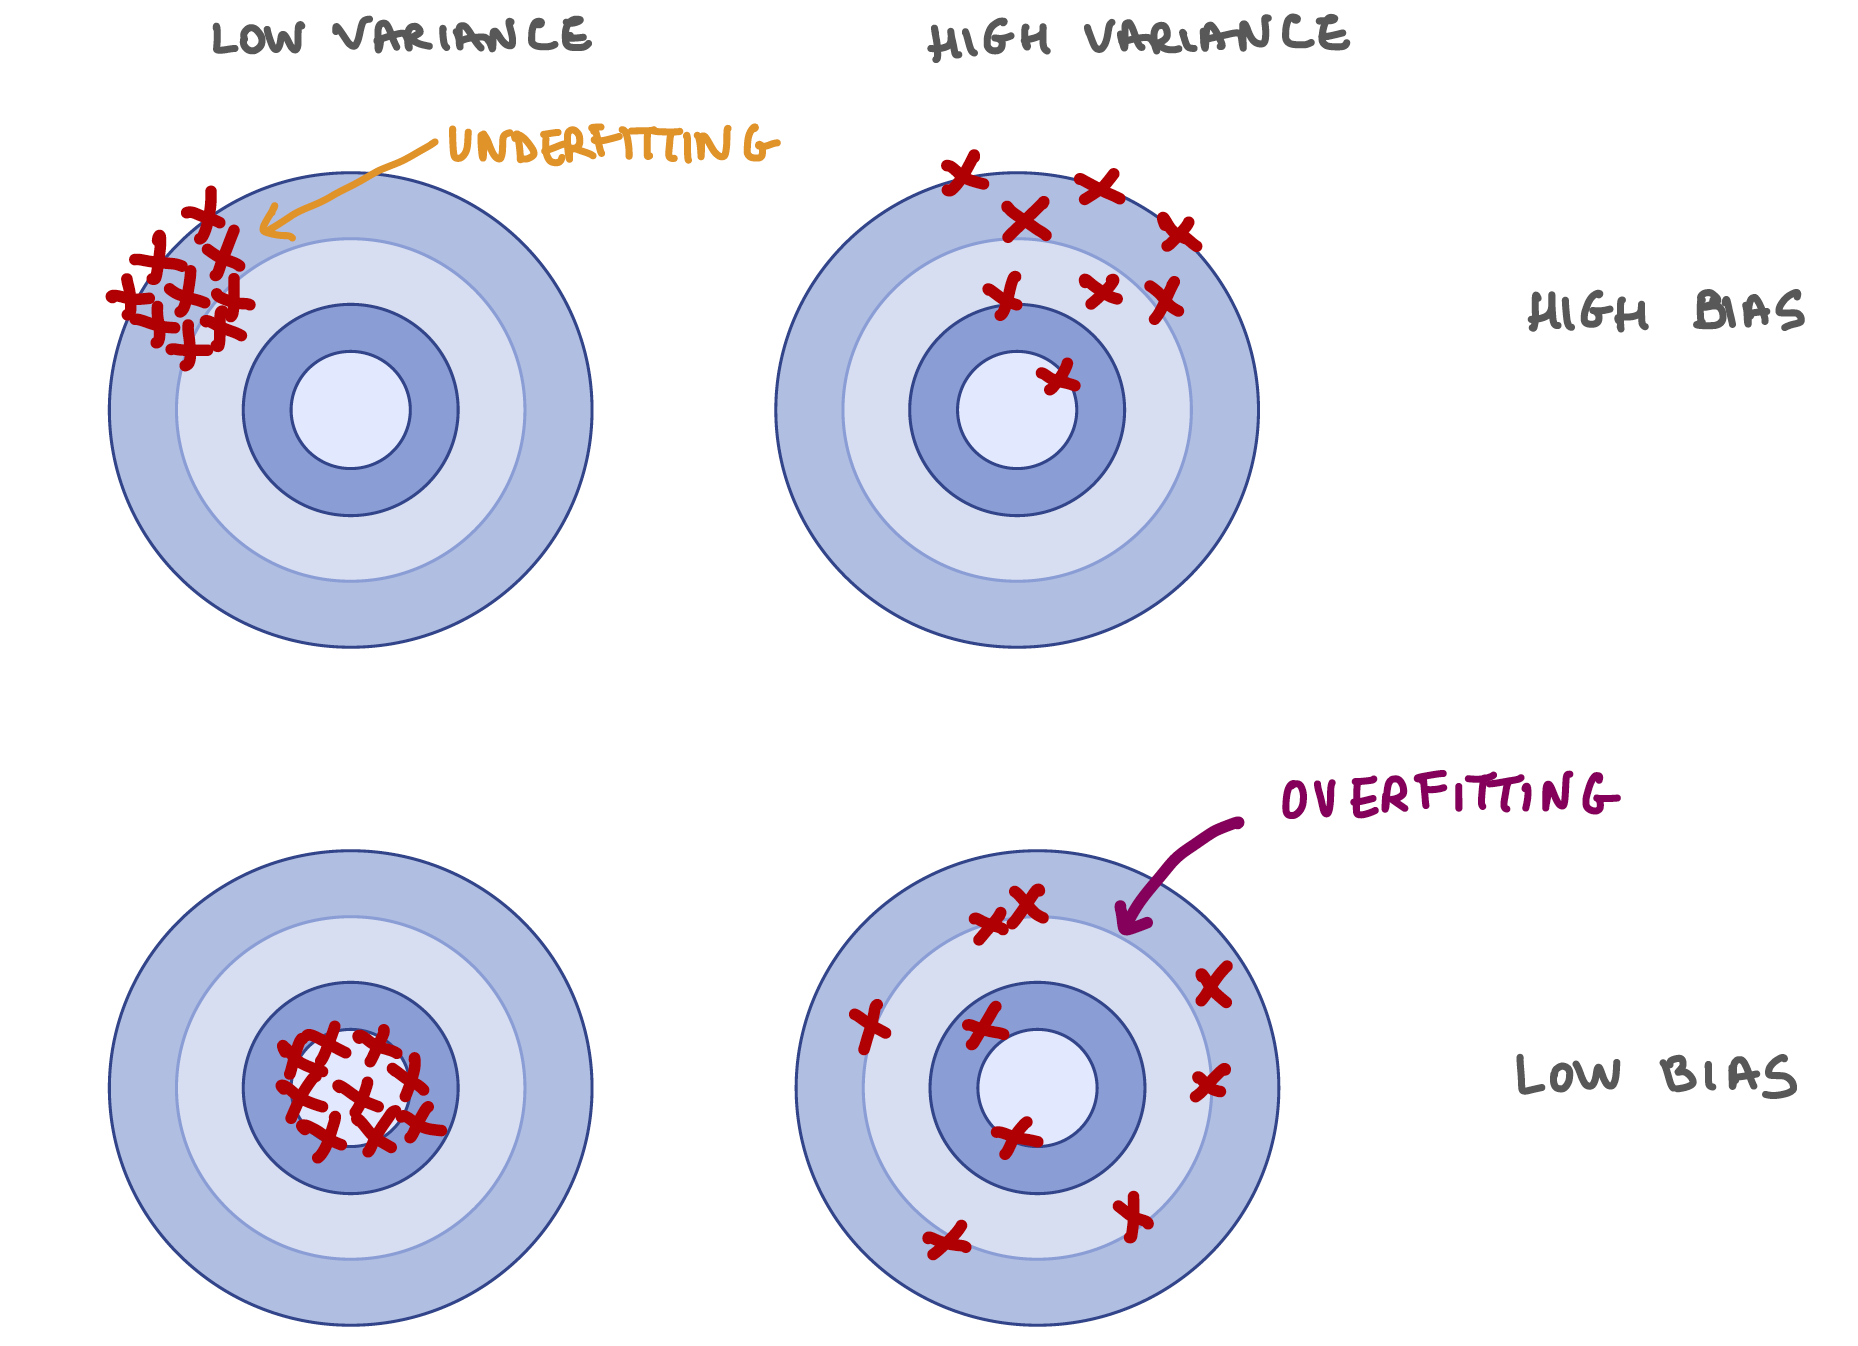 LOW VARIANCE
HIGH VARIANCE
UNDERFITTING
HIGH BIAS
OVERFITTING
LOW BIAS